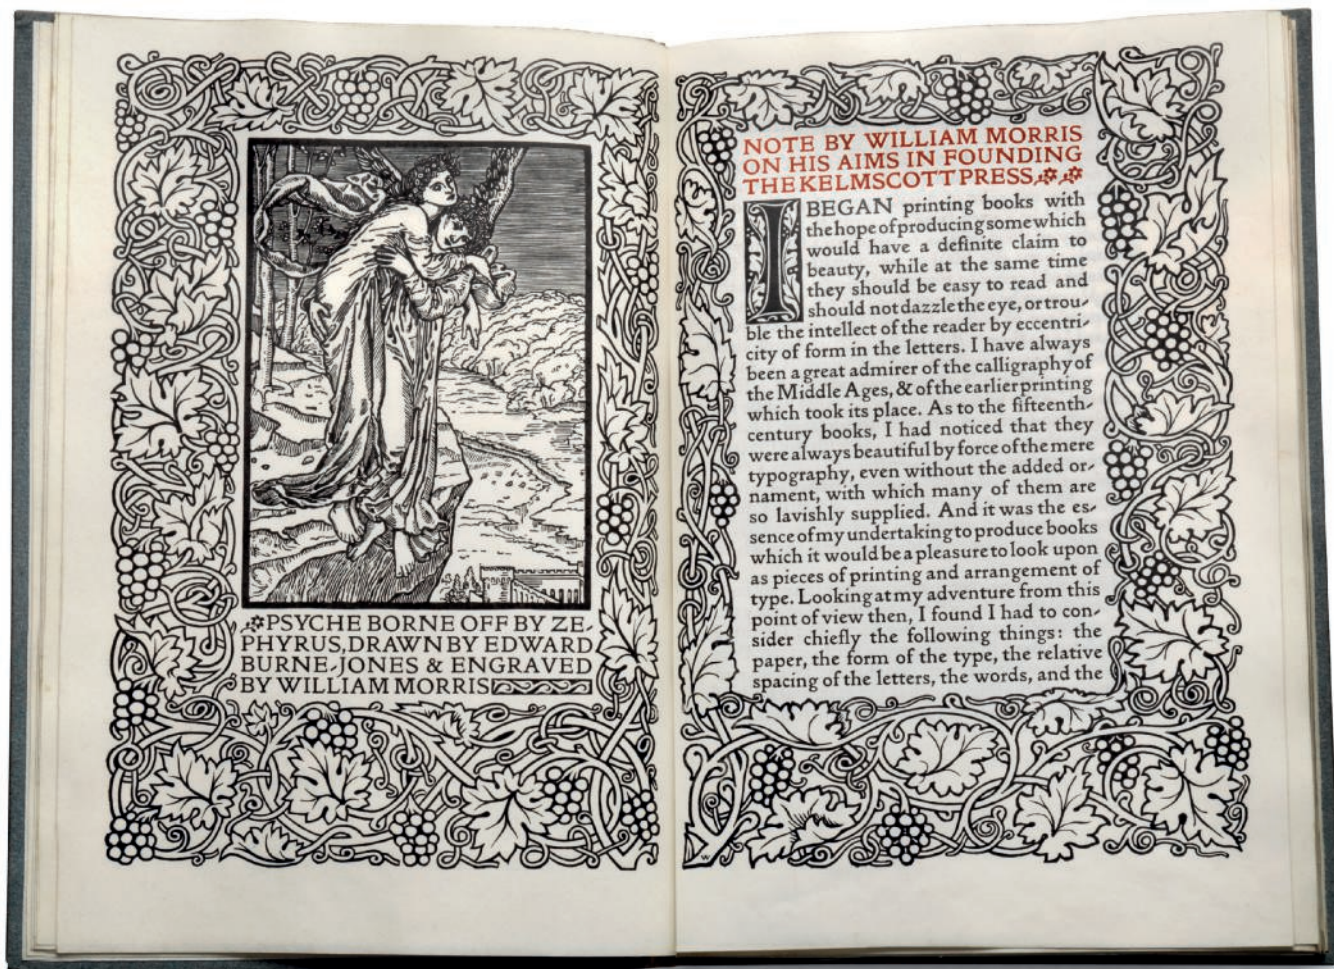 PSYCHE BORNE OFF BY ZE-
PHYRUS, DRAWN BY EDWARD
BURNE-JONES & ENGRAVED
BY WILLIAM MORRIS
NOTE BY WILLIAM MORRIS
ON HIS AIMS IN FOUNDING
THE KELMSCOTT PRESS
I BEGAN printing books with
the hope of producing some which
would have a definite claim to
beauty, while at the same time
they should be easy to read and
should not dazzle the eye, or trou-
ble the intellect of the reader by eccentri-
city of form in the letters. I have always
been a great admirer of the calligraphy of
the Middle Ages, & of the earlier printing
which took its place. As to the fifteenth-
century books, I had noticed that they
were always beautiful by force of the mere
typography, even without the added or-
nament, with which many of them are
so lavishly supplied. And it was the es-
sence of my undertaking to produce books
which it would be a pleasure to look upon
as pieces of printing and arrangement of
type. Looking at my adventure from this
point of view then, I found I had to con-
sider chiefly the following things: the
paper, the form of the type, the relative
spacing of the letters, the words, and the